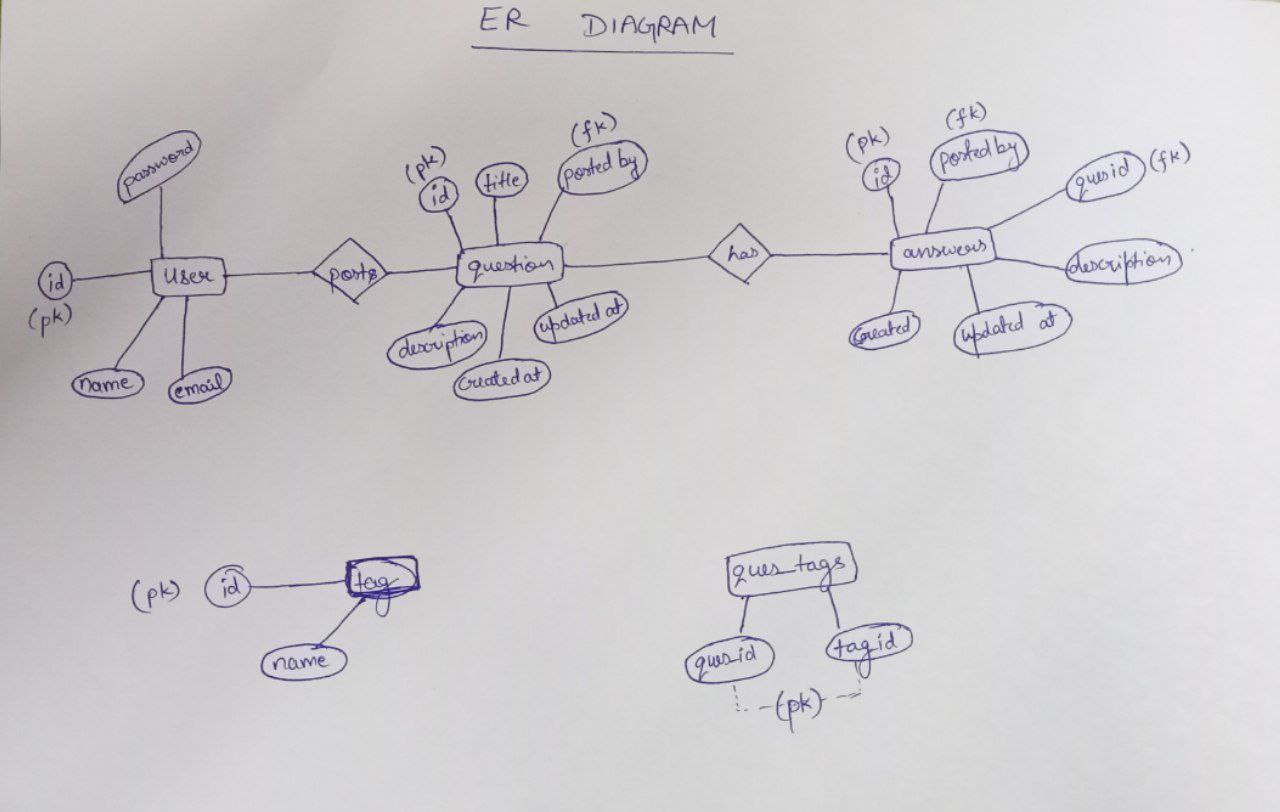 ER DIAGRAM
password
id
(pk)
User
name
email
posts
(pk)
id
title
(fk)
posted by
question
description
created at
updated at
has
(pk)
id
(fk)
posted by
quesid (fk)
answers
description
created
updated at
(pk) id
tag
name
ques_tags
ques_id
tag_id
(pk)